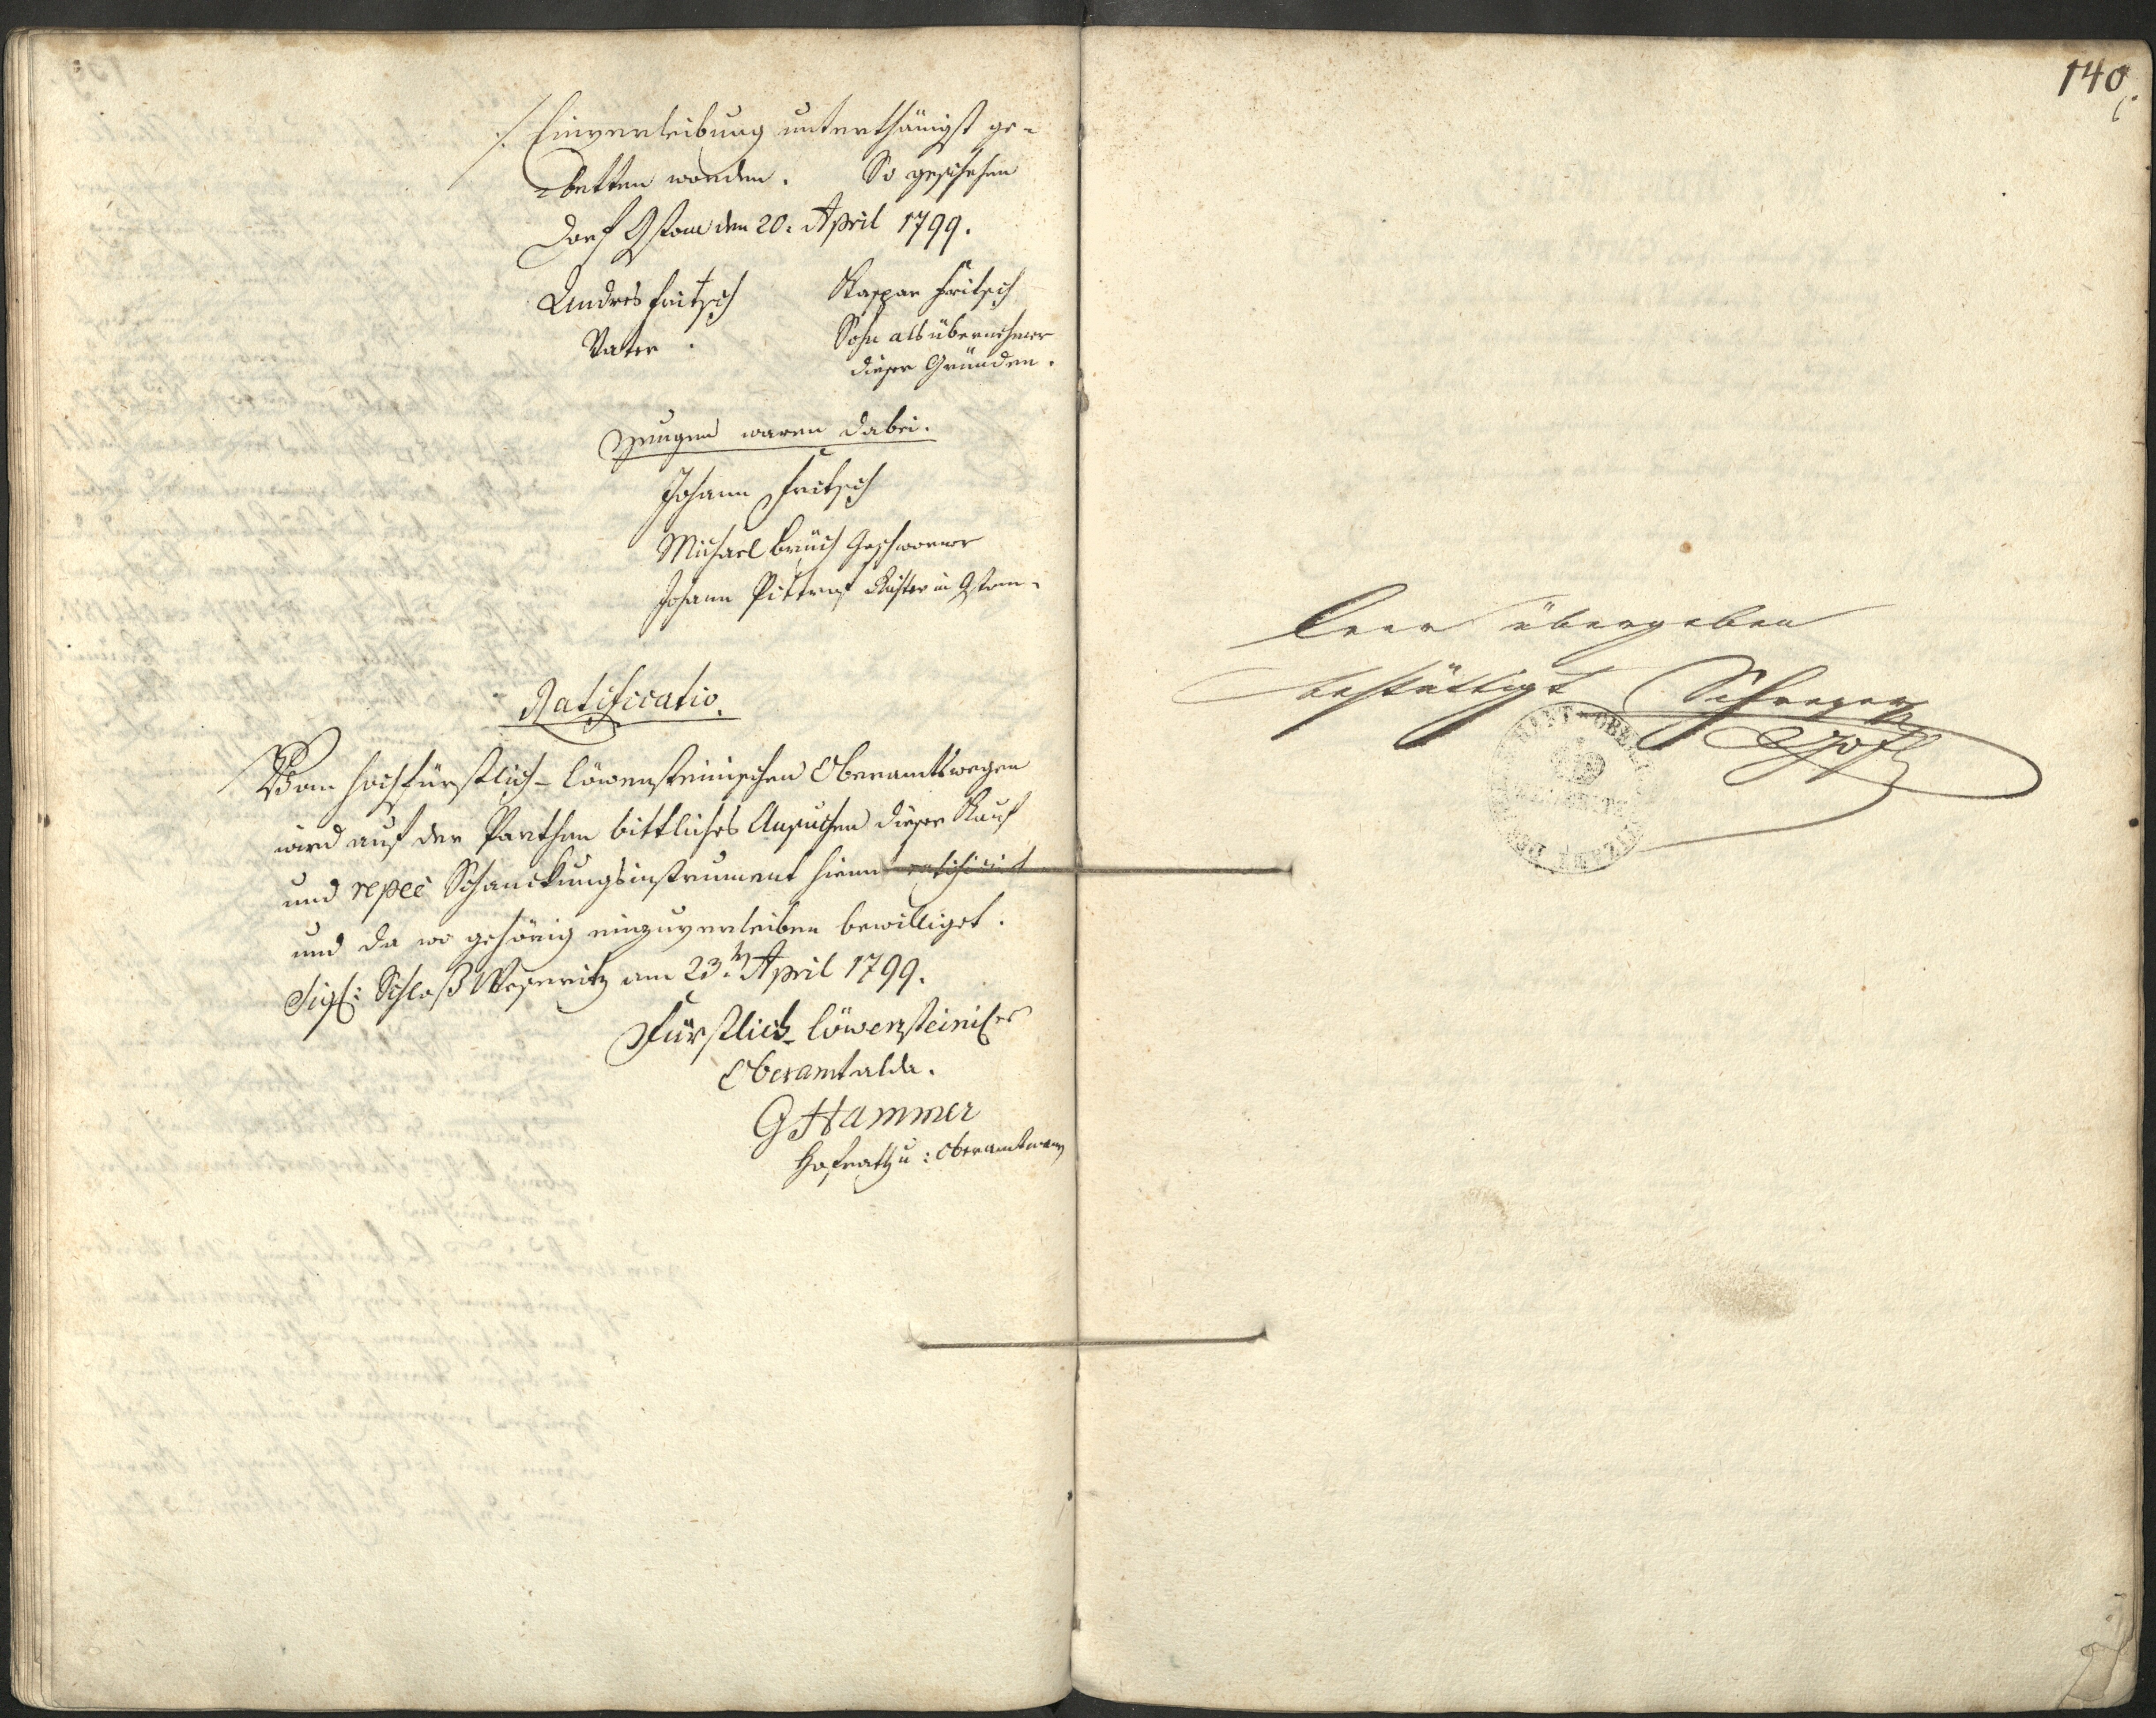 ./. Einverleibung unterthänigst ge-
betten worden. So geschehen
Dorf Gstom den 20. April 1799.
Andres Fritsch
Vater.
Kaspar Fritsch
Sohn als übernehmer
dieser Gründen.
Zeugen waren dabei.
Johann Fritsch
Michael Geschworner
Johann Pittrof Richter in Gstom.
Ratificatio.
Vom hochfürstlich-löwensteinischen Oberamtswegen
wird auf der Parthen bittliches Ansuchen dieser Kauf
und respee Schanckungsinstrument hiemit ratificirt
und da wo gehörig einzuverleiben bewilliget.
Sigl: Schloß Weseritz am 23. April 1799.
Fürstlich löwensteinises
Oberamt alda.
G Hammer
Hofrath u: Oberamtmann
140
Leer übergeben
bestättigt